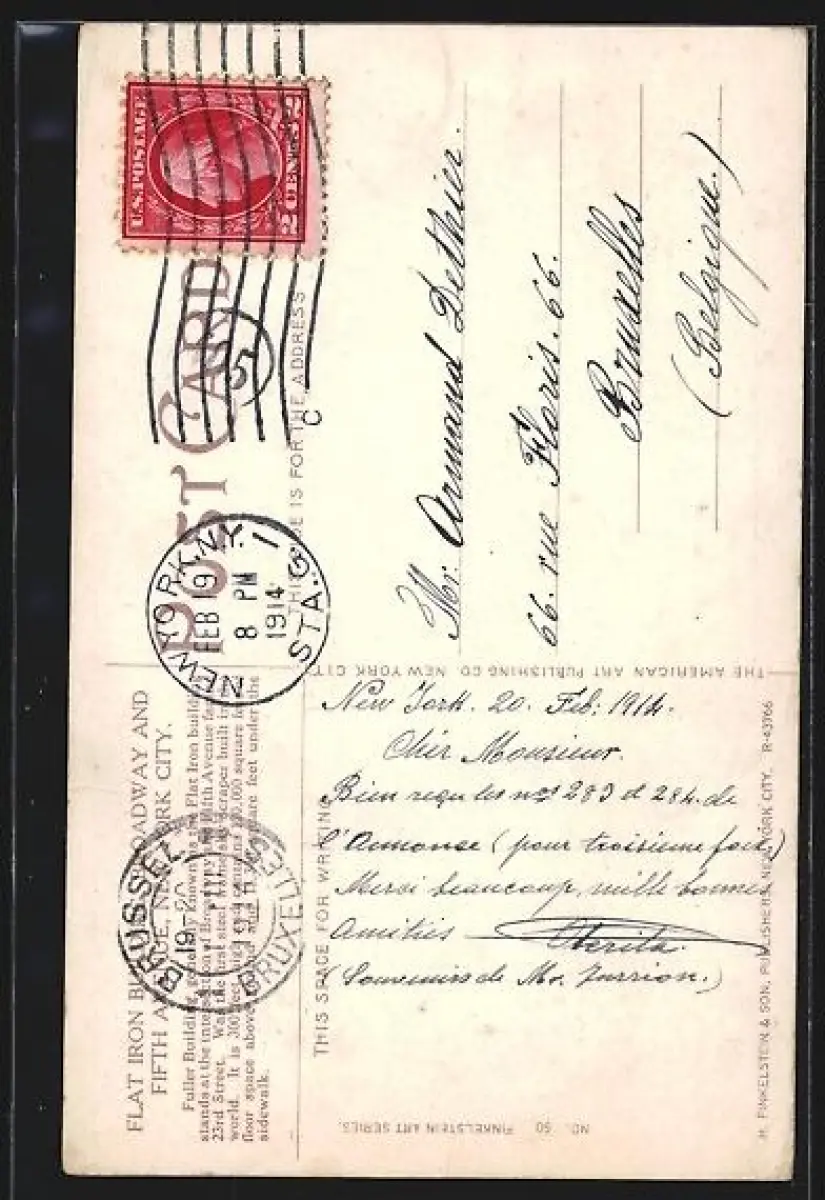 U.S. POSTAGE
2 CENTS 2
POST CARD
THIS SIDE IS FOR THE ADDRESS
C
5
NEW YORK, N.Y.
FEB 19
8 PM
1914
STA. G
1
Mr. Armand Dethier.
66. rue Floris. 66.
Bruxelles
(Belgique.)
THE AMERICAN ART PUBLISHING CO. NEW YORK CITY
FLAT IRON BUILDING, BROADWAY AND
FIFTH AVENUE, NEW YORK CITY.
Fuller Building, generally known as the Flat Iron building,
stands at the intersection of Broadway and Fifth Avenue
23rd Street. Was the first steel frame skyscraper built in
world. It is 300 feet high and contains 120,000 square
floor space above ground and square feet under the
sidewalk.
BRUSSEL
19-20
BRUXELLES
THIS SPACE FOR WRITING
New York. 20. Feb: 1914.
Cher Monsieur.
Bien reçu les nos 283 et 284. de
l'Annonse (pour troisieme fois)
Merci beaucoup, mille bonnes
Amitiés
(Souvenirs de Mr. .)
NO. 50 FINKELSTEIN ART SERIES.
H. FINKELSTEIN & SON, PUBLISHERS, NEW YORK CITY. R-43766